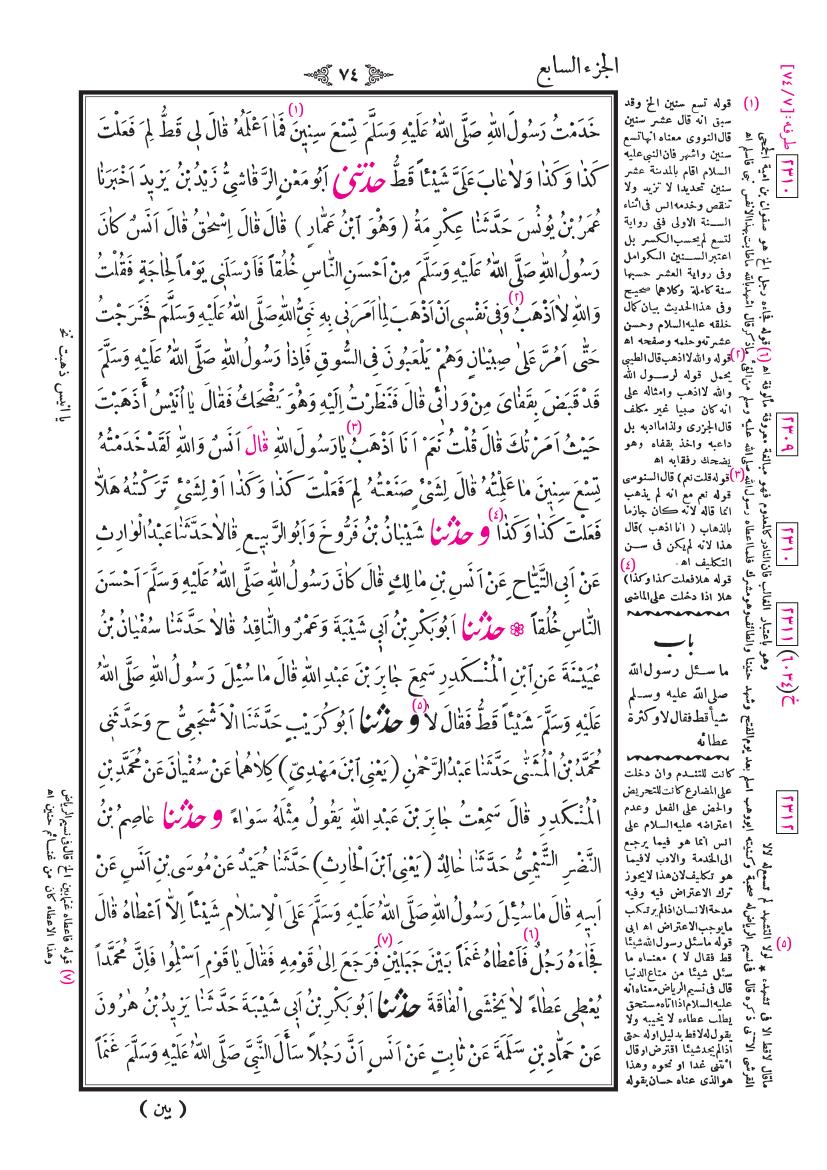 الجزء السابع
٧٤
خَدَمْتُ رَسُولَ اللهِ صَلَّى اللهُ عَلَيْهِ وَسَلَّمَ تِسْعَ سِنِينَ (١) فَمَا أَعْلَمُهُ قَالَ لِي قَطُّ لِمَ فَعَلْتَ
كَذَا وَكَذَا وَلَا عَابَ عَلَيَّ شَيْئاً قَطُّ حَدَّثَنِي أَبُو مَعْنٍ الرَّقَاشِيُّ زَيْدُ بْنُ يَزِيدَ أَخْبَرَنَا
عُمَرُ بْنُ يُونُسَ حَدَّثَنَا عِكْرِمَةُ ( وَهُوَ ابْنُ عَمَّارٍ ) قَالَ قَالَ إِسْحٰقُ قَالَ أَنَسٌ كَانَ
رَسُولُ اللهِ صَلَّى اللهُ عَلَيْهِ وَسَلَّمَ مِنْ أَحْسَنِ النَّاسِ خُلُقاً فَأَرْسَلَنِي يَوْماً لِحَاجَةٍ فَقُلْتُ
وَاللهِ لَا أَذْهَبُ (٢) وَفِي نَفْسِي أَنْ أَذْهَبَ لِمَا أَمَرَنِي بِهِ نَبِيُّ اللهِ صَلَّى اللهُ عَلَيْهِ وَسَلَّمَ فَخَرَجْتُ
حَتَّى أَمُرَّ عَلَى صِبْيَانٍ وَهُمْ يَلْعَبُونَ فِي السُّوقِ فَإِذَا رَسُولُ اللهِ صَلَّى اللهُ عَلَيْهِ وَسَلَّمَ
قَدْ قَبَضَ بِقَفَايَ مِنْ وَرَائِي قَالَ فَنَظَرْتُ إِلَيْهِ وَهُوَ يَضْحَكُ فَقَالَ يَا أُنَيْسُ أَذَهَبْتَ
حَيْثُ أَمَرْتُكَ قَالَ قُلْتُ نَعَمْ أَنَا أَذْهَبُ (٣) يَا رَسُولَ اللهِ قَالَ أَنَسٌ وَاللهِ لَقَدْ خَدَمْتُهُ
تِسْعَ سِنِينَ مَا عَلِمْتُهُ قَالَ لِشَيْءٍ صَنَعْتُهُ لِمَ فَعَلْتَ كَذَا وَكَذَا أَوْ لِشَيْءٍ تَرَكْتُهُ هَلَّا
فَعَلْتَ كَذَا وَكَذَا (٤) وحَدَّثَنَا شَيْبَانُ بْنُ فَرُّوخَ وَأَبُو الرَّبِيعِ قَالَا حَدَّثَنَا عَبْدُ الْوَارِثِ
عَنْ أَبِي التَّيَّاحِ عَنْ أَنَسِ بْنِ مَالِكٍ قَالَ كَانَ رَسُولُ اللهِ صَلَّى اللهُ عَلَيْهِ وَسَلَّمَ أَحْسَنَ
النَّاسِ خُلُقاً حَدَّثَنَا أَبُو بَكْرِ بْنُ أَبِي شَيْبَةَ وَعَمْرٌو النَّاقِدُ قَالَا حَدَّثَنَا سُفْيَانُ بْنُ
عُيَيْنَةَ عَنِ ابْنِ الْمُنْكَدِرِ سَمِعَ جَابِرَ بْنَ عَبْدِ اللهِ قَالَ مَا سُئِلَ رَسُولُ اللهِ صَلَّى اللهُ
عَلَيْهِ وَسَلَّمَ شَيْئاً قَطُّ فَقَالَ لَا (٥) وحَدَّثَنَا أَبُو كُرَيْبٍ حَدَّثَنَا الْأَشْجَعِيُّ ح وَحَدَّثَنِي
مُحَمَّدُ بْنُ الْمُثَنَّى حَدَّثَنَا عَبْدُ الرَّحْمٰنِ ( يَعْنِي ابْنَ مَهْدِيٍّ ) كِلَاهُمَا عَنْ سُفْيَانَ عَنْ مُحَمَّدِ بْنِ
الْمُنْكَدِرِ قَالَ سَمِعْتُ جَابِرَ بْنَ عَبْدِ اللهِ يَقُولُ مِثْلَهُ سَوَاءً وحَدَّثَنَا عَاصِمُ بْنُ
النَّضْرِ التَّيْمِيُّ حَدَّثَنَا خَالِدٌ ( يَعْنِي ابْنَ الْحَارِثِ ) حَدَّثَنَا حُمَيْدٌ عَنْ مُوسَى بْنِ أَنَسٍ عَنْ
أَبِيهِ قَالَ مَا سُئِلَ رَسُولُ اللهِ صَلَّى اللهُ عَلَيْهِ وَسَلَّمَ عَلَى الْإِسْلَامِ شَيْئاً إِلَّا أَعْطَاهُ قَالَ
فَجَاءَهُ رَجُلٌ (٦) فَأَعْطَاهُ غَنَماً بَيْنَ جَبَلَيْنِ (٧) فَرَجَعَ إِلَى قَوْمِهِ فَقَالَ يَا قَوْمِ أَسْلِمُوا فَإِنَّ مُحَمَّداً
يُعْطِي عَطَاءً لَا يَخْشَى الْفَاقَةَ حَدَّثَنَا أَبُو بَكْرِ بْنُ أَبِي شَيْبَةَ حَدَّثَنَا يَزِيدُ بْنُ هٰرُونَ
عَنْ حَمَّادِ بْنِ سَلَمَةَ عَنْ ثَابِتٍ عَنْ أَنَسٍ أَنَّ رَجُلاً سَأَلَ النَّبِيَّ صَلَّى اللهُ عَلَيْهِ وَسَلَّمَ غَنَماً
( بين )
(١) قوله تسع سنين الخ وقد
سبق انه قال عشر سنين
قال النووى معناه انها تسع
سنين واشهر فان النبى عليه
السلام اقام بالمدينة عشر
سنين تحديدا لا تزيد ولا
تنقص وخدمه انس فى اثناء
السنة الاولى ففى رواية
تسع لم يحسب الكسر بل
اعتبر السنين الكوامل
وفى رواية العشر حسبها
سنة كاملة وكلاهما صحيح
وفى هذا الحديث بيان كمال
خلقه عليه السلام وحسن
عشرته وحلمه وصفحه اه
(٢) قوله والله لا اذهب قال الطيبى
يحمل قوله لرسول الله
والله لا اذهب وامثاله على
انه كان صبيا غير مكلف
قال الجزرى ولذا ما ادبه بل
داعبه واخذ بقفاه وهو
يضحك رفقا به اه
(٣) قوله قلت نعم) قال السنوسى
قوله نعم مع انه لم يذهب
انما قاله لانه كان جازما
بالذهاب ( انا اذهب ) قال
هذا لانه لم يكن فى سن
التكليف اه
(٤) قوله هلا فعلت كذا وكذا)
هلا اذا دخلت على الماضى
باب
ما سئل رسول الله
صلى الله عليه وسلم
شيأ قط فقال لا وكثرة
عطائه
كانت للتندم وان دخلت
على المضارع كانت للتحريض
والحض على الفعل وعدم
اعتراضه عليه السلام على
انس انما هو فيما يرجع
الى الخدمة والادب لا فيما
هو تكليف لان هذا لا يجوز
ترك الاعتراض فيه وفيه
مدحة الانسان اذا لم يرتكب
ما يوجب الاعتراض اه ابى
(٥) قوله ما سئل رسول الله شيئا
قط فقال لا ) معناه ما
سئل شيئا من متاع الدنيا
قال فى نسيم الرياض معناه انه
عليه السلام اذا اتاه مستحق
يطلب عطاءه لا يخيبه ولا
يقول له لا فقط بدليل اوله حتى
اذا لم يجد شيئا اقترض او قال
ائتنى غدا او نحوه وهذا
هو الذى عناه حسان بقوله
ما قال لا قط الا فى تشهده * لولا التشهد لم تسمع له لا لا
(٧) قوله فاعطاه غنما بين الخ قال فى نسيم الرياض
وهذا الاعطاء كان من غنائم حنين اه
يا انيس ذهبت نخ
طرفه: [٧٤/٧]
٢٣١٠
٢٣٠٩
٢٣١٠
٢٣١١
خ (٦٠٣٤)
٢٣١٢